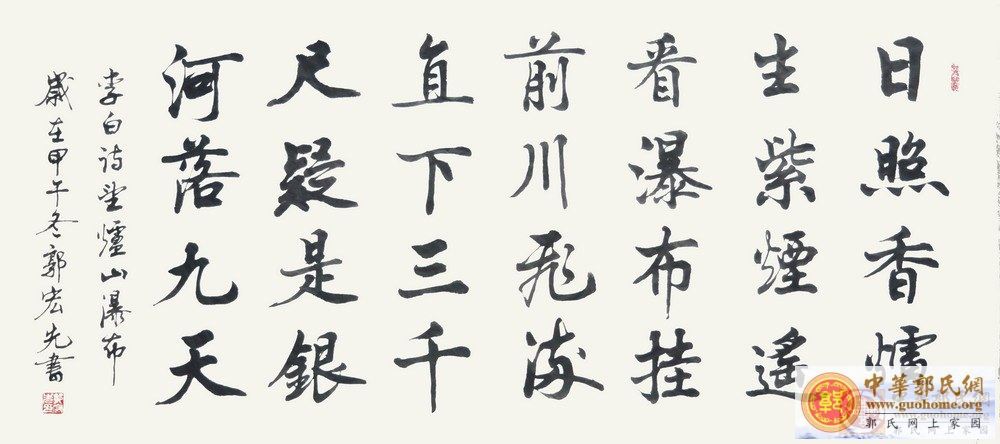 日照香爐
生紫煙遙
看瀑布挂
前川飛流
直下三千
尺疑是銀
河落九天
李白诗望爐山瀑布
歲在甲午冬郭宏先書
中華郭氏網
www.guohome.org
郭氏网上家园